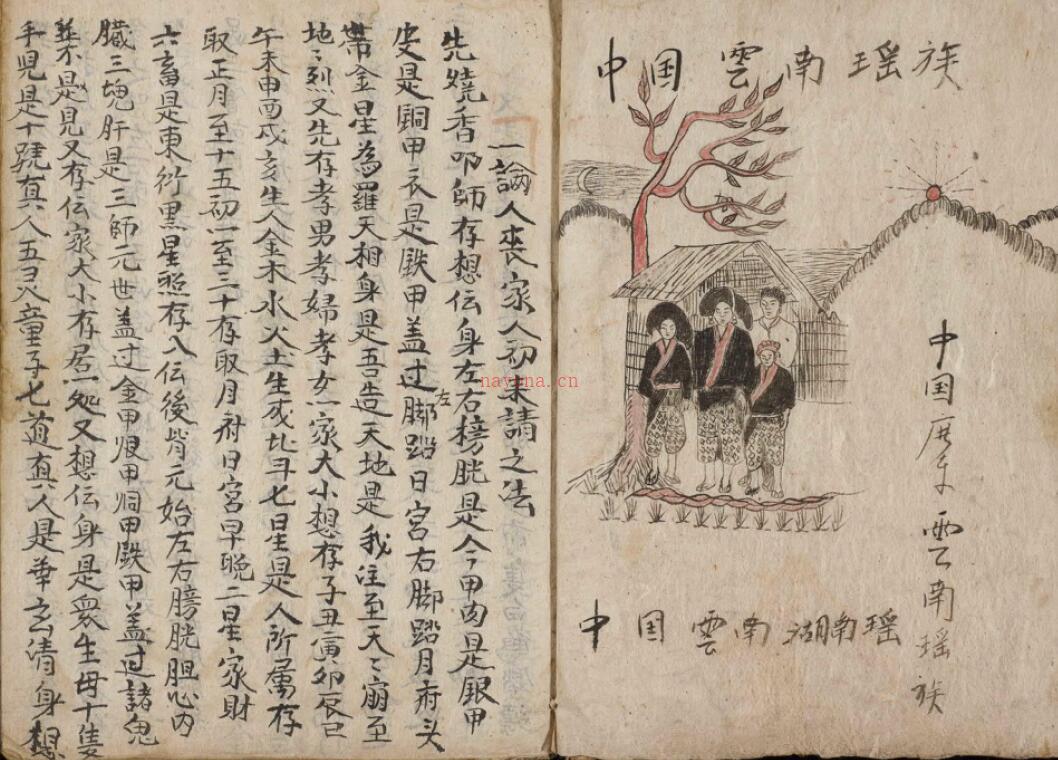 中国雲南瑶族
中国雲南瑶族
中国雲南湖南瑶
一論人丧家人初未請之法
先燒香叩師存想伝身左右榜胱是今甲肉是銀甲
皮是銅甲衣是鉄甲盖过左脚踏日宮右脚踏月府头
帶金星為羅天相身是吾造天地是我注至天〻崩至
地〻烈又先存孝男孝婦孝女一家大小想存子丑寅卯辰巳
午未申酉戌亥生人金木水火土生成北斗七星是人所属存
取正月至十五初一至三十存取月府日宮早晚二星家財
六畜是東行黑星照存入伝後背元始左右膀胱胆心内
臟三魂肝是三師元世盖过金甲艮甲洞甲鉄甲盖过諸鬼
不是見又存伝家大小存居一処又想伝身是衆生母十隻
手児是十號真人五灵童子七道真人是華玄清身想
nayona.cn